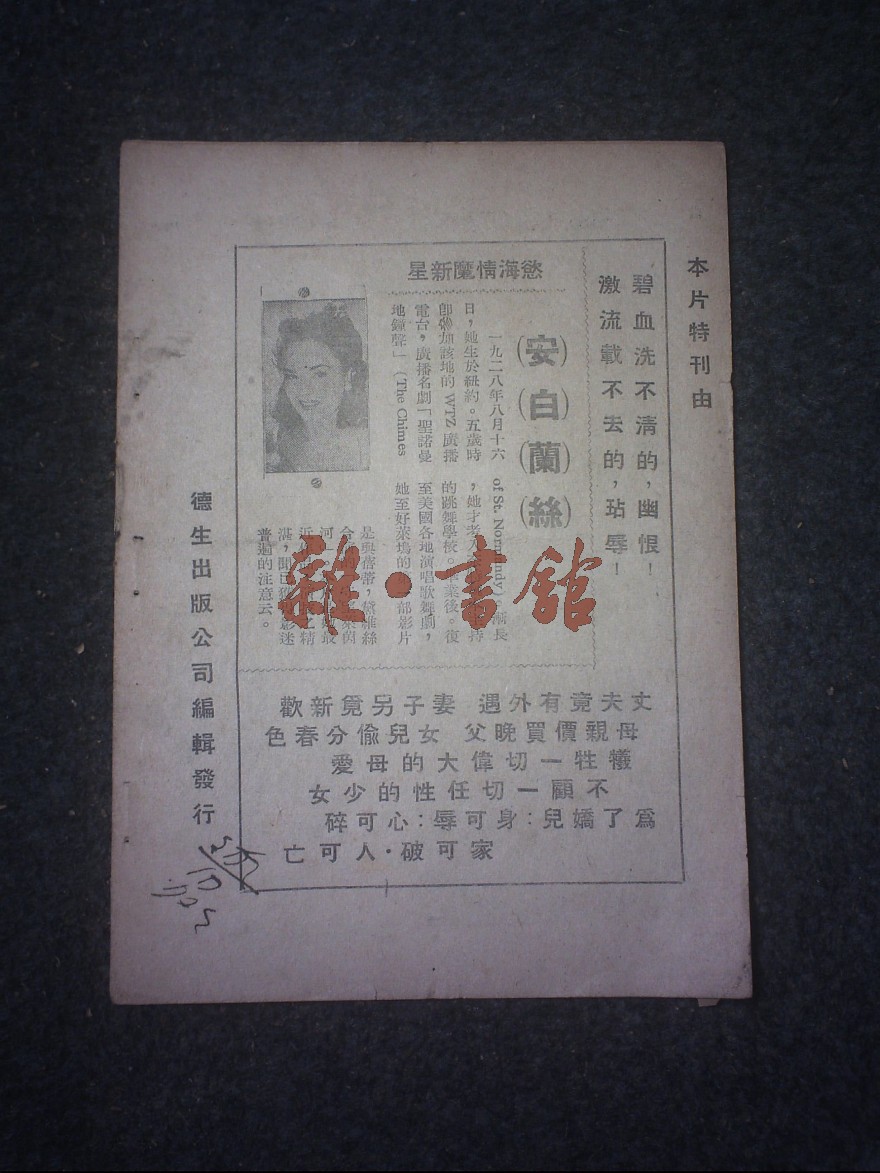 本片特刊由
碧血洗不清的，幽恨！
激流載不去的，玷辱！
慾海情魔新星
（安）（白）（蘭）（絲）
一九二八年八月十六
日，她生於紐約。五歲時
即參加該地的 WTZ 廣播
電台，廣播名劇「聖諾曼
地鐘聲」（The Chimes
of St. Normandy) 漸長
，她才考入 持
的跳舞學校 業後。復
至美國各地演唱歌舞劇，
她至好萊塢的 部影片
是與蓓蒂，黛維絲
合
河 最
近 之精
湛，聞已獲 影迷
普遍的注意云。
丈夫竟有外遇 妻子另覓新歡
母親價買晚父 女兒偷分春色
犧牲一切偉大的母愛
不顧一切任性的少女
爲了嬌兒：身可辱：心可碎
家可破·人可亡
德生出版公司編輯發行
雜·書館